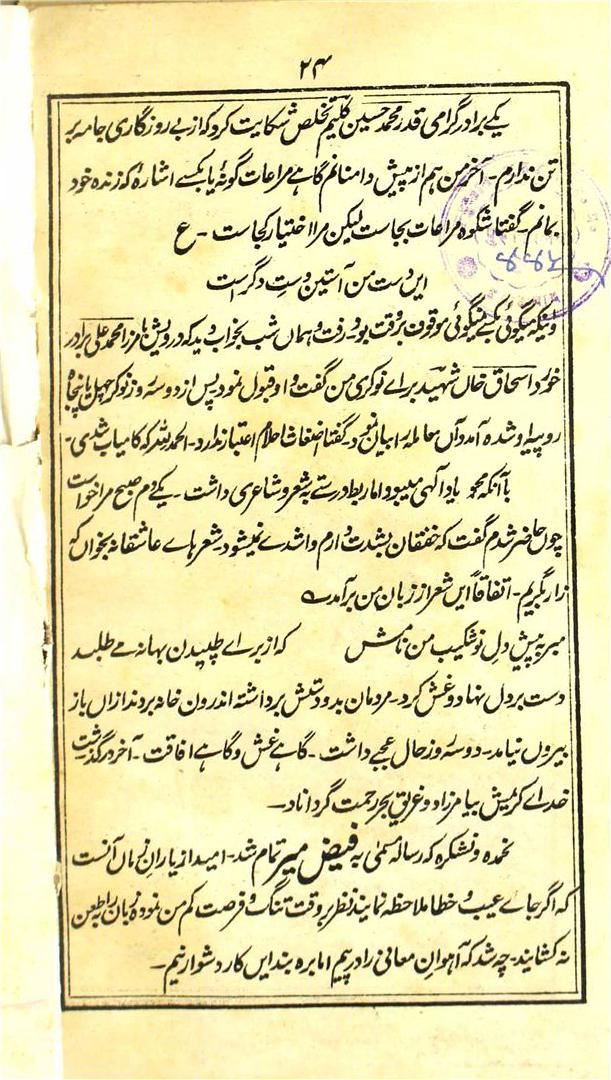 ۲۴
یکے برادر گرامی قدر محمد حسین کلیم تخلص شکایت کرد که از بے روزگاری جامه بر
تن ندارم - آخر من هم از پیش دامنانم گاهے مراعات گونهٔ یا بکسے اشارهٔ که زنده خود
بمانم - گفتا شکوه مراعات بجاست لیکن مرا اختیار کجاست - ع
ایں دست من آستین دست دگر است
موقوف بر وقت بود - رفت و هماں شب بخواب دید که درویش با مرزا محمد علی برادر
خورد اسحاق خاں شهید برائے نوکری من گفت و او قبول نمود پس از دو سه روز نوکر چهل پنجاه
روپیه او شده آمد و آں معامله را بیان نمود - گفتم اضغاث احلام اعتبار ندارد - الحمد لله که کامیاب شدی -
باآنکه محمد یاد الٰهی میبود اما ربط درستے به شعر و شاعری داشت - یکے دم صبح مرا خواست
چوں حاضر شدم گفت که خفقان بشدت دارم واشدے نمیشود - شعر هاے عاشقانه بخواں که
زار بگریم - اتفاقاً ایں شعر از زبان من برآمد
مبر به پیش دل نوشکیب من نامش که از براے طپیدن بهانه مے طلبد
دست بر دل نهاد و غش کرد - مردمان بدو دستش برداشته اندرون خانه بردند ازاں باز
بیروں نیامد - دو سه روز حال عجبے داشت - گاهے غش و گاهے افاقت - آخر درگذشت
خداے کریمش بیامرزاد و غریق بحر رحمت گرداناد -
نحمده و نشکره که رساله مسمی به فیض میر تمام شد - امید از یاران زماں آنست
که اگر جاے عیب و خطا ملاحظه نمایند نظر بر وقت تنگ و فرصت کم من نموده زبان را به طعن
نه کشایند - چه شد که آهوان معانی را در پیم اما بره بند ایں کار دشوار نیم -